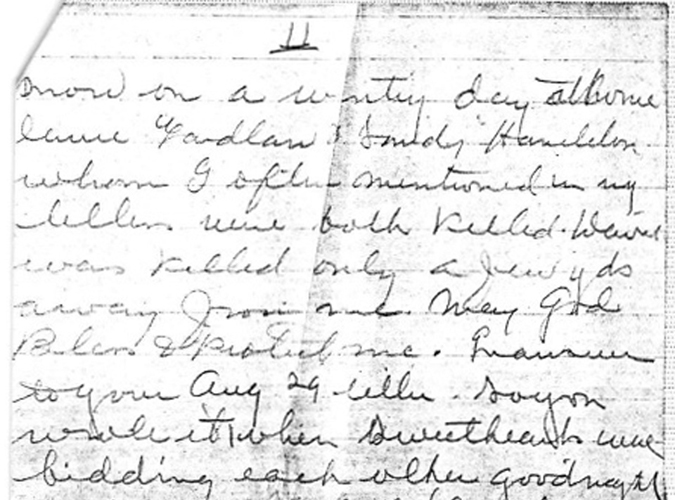 11
snow on a wintry day at home
& Sandy Hamilton
whom I often mentioned in my
letters were both killed. Dave
was killed only a few yds
away from me. May God
Bless & Protect me. In answer
to your Aug 29 letter. So you
wrote it when Sweethearts were
bidding each other goodnight